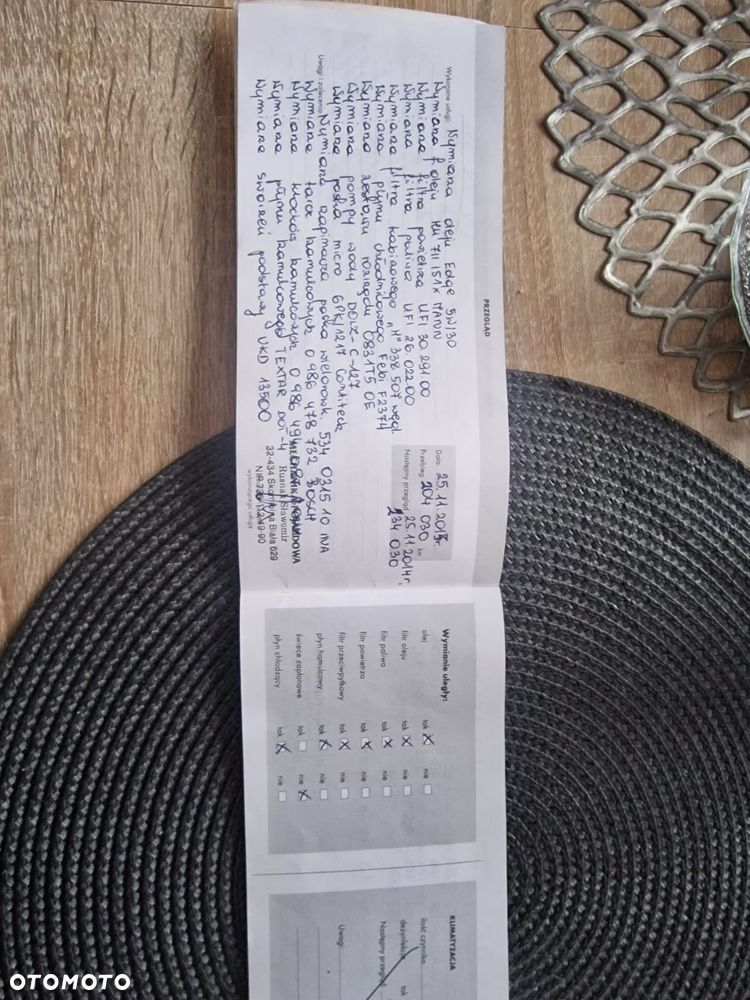 PRZEGLĄD
Wykonane usługi Wymiana oleju Edge 5W/30
Wymiana f. oleju HU 711 151x MANN
Wymiana filtra powietrza UFI 30 291 00
Wymiana filtra paliwa UFI 26.022.00
Wymiana filtra kabinowego "H" 338 507 węgl.
Wymiana płynu chłodniczego Febi F2374
Wymiana zestawu rozrządu 0831T5 OE
Wymiana pompy wody DOLZ-C-127
Wymiana paska micro 6PK/1217 Contitech
Uwagi i zalecenia Wymiana napinacza paska wielorowk. 534 0315 10 INA
Wymiana tarcz hamulcowych 0 986 478 732 BOSCH
Wymiana klocków hamulcowych 0 986 494
Wymiana płynu hamulcowego TEXTAR DOT-4
Wymiana sworzeń podstawy VKD 13500
Data 25.11.2013r.
Przebieg 204 030 km
Następny przegląd 25.11.2014r.
234 030
Rusnak Sławomir
32-434 Skomielna Biała 629
wykonującego usługę
Wymianie uległy:
olej tak X nie
filtr oleju tak X nie
filtr paliwa tak X nie
filtr powietrza tak X nie
filtr przeciwpyłkowy tak X nie
płyn hamulcowy tak X nie
świece zapłonowe tak nie X
płyn chłodzący tak X nie
KLIMATYZACJA
ilość czynnika
dezynfekcja tak
Następny przegląd
Uwagi:
OTOMOTO